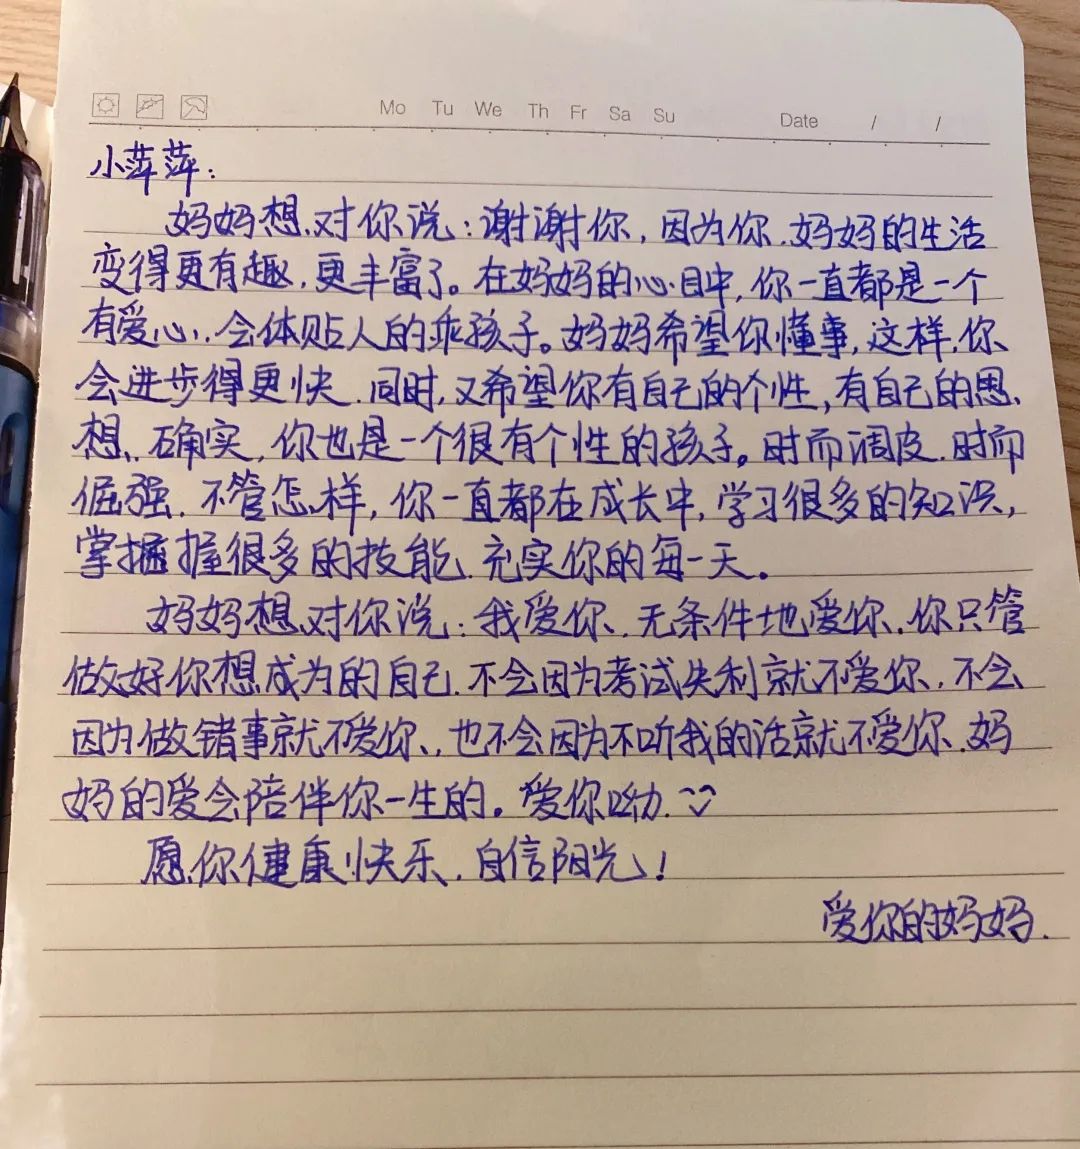 Mo Tu We Th Fr Sa Su Date / /
小萍萍：
妈妈想对你说：谢谢你，因为你，妈妈的生活
变得更有趣，更丰富了。在妈妈的心目中，你一直都是一个
有爱心，会体贴人的乖孩子。妈妈希望你懂事，这样，你
会进步得更快，同时，又希望你有自己的个性，有自己的思
想，确实，你也是一个很有个性的孩子。时而调皮，时而
倔强，不管怎样，你一直都在成长中，学习很多的知识，
掌握握很多的技能，充实你的每一天。
妈妈想对你说：我爱你，无条件地爱你，你只管
做好你想成为的自己，不会因为考试失利就不爱你，不会
因为做错事就不爱你，也不会因为不听我的话就不爱你，妈
妈的爱会陪伴你一生的。爱你呦.
愿你健康快乐，自信阳光！
爱你的妈妈.